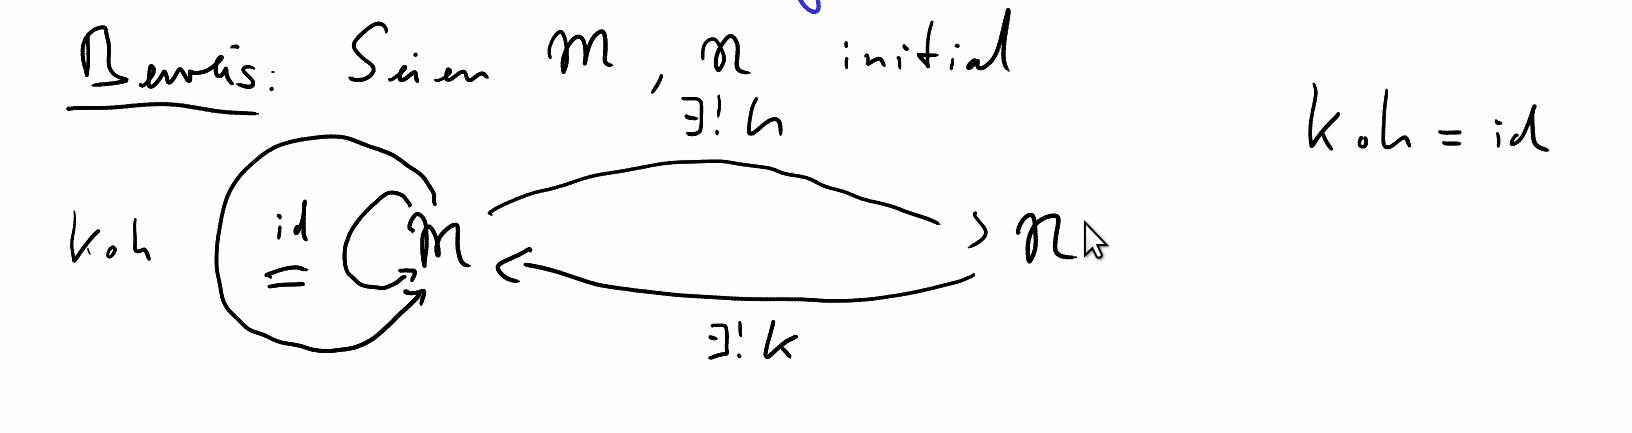 Beweis: Seien m, n initial
∃! h
k∘h = id
k∘h id m n
∃! k